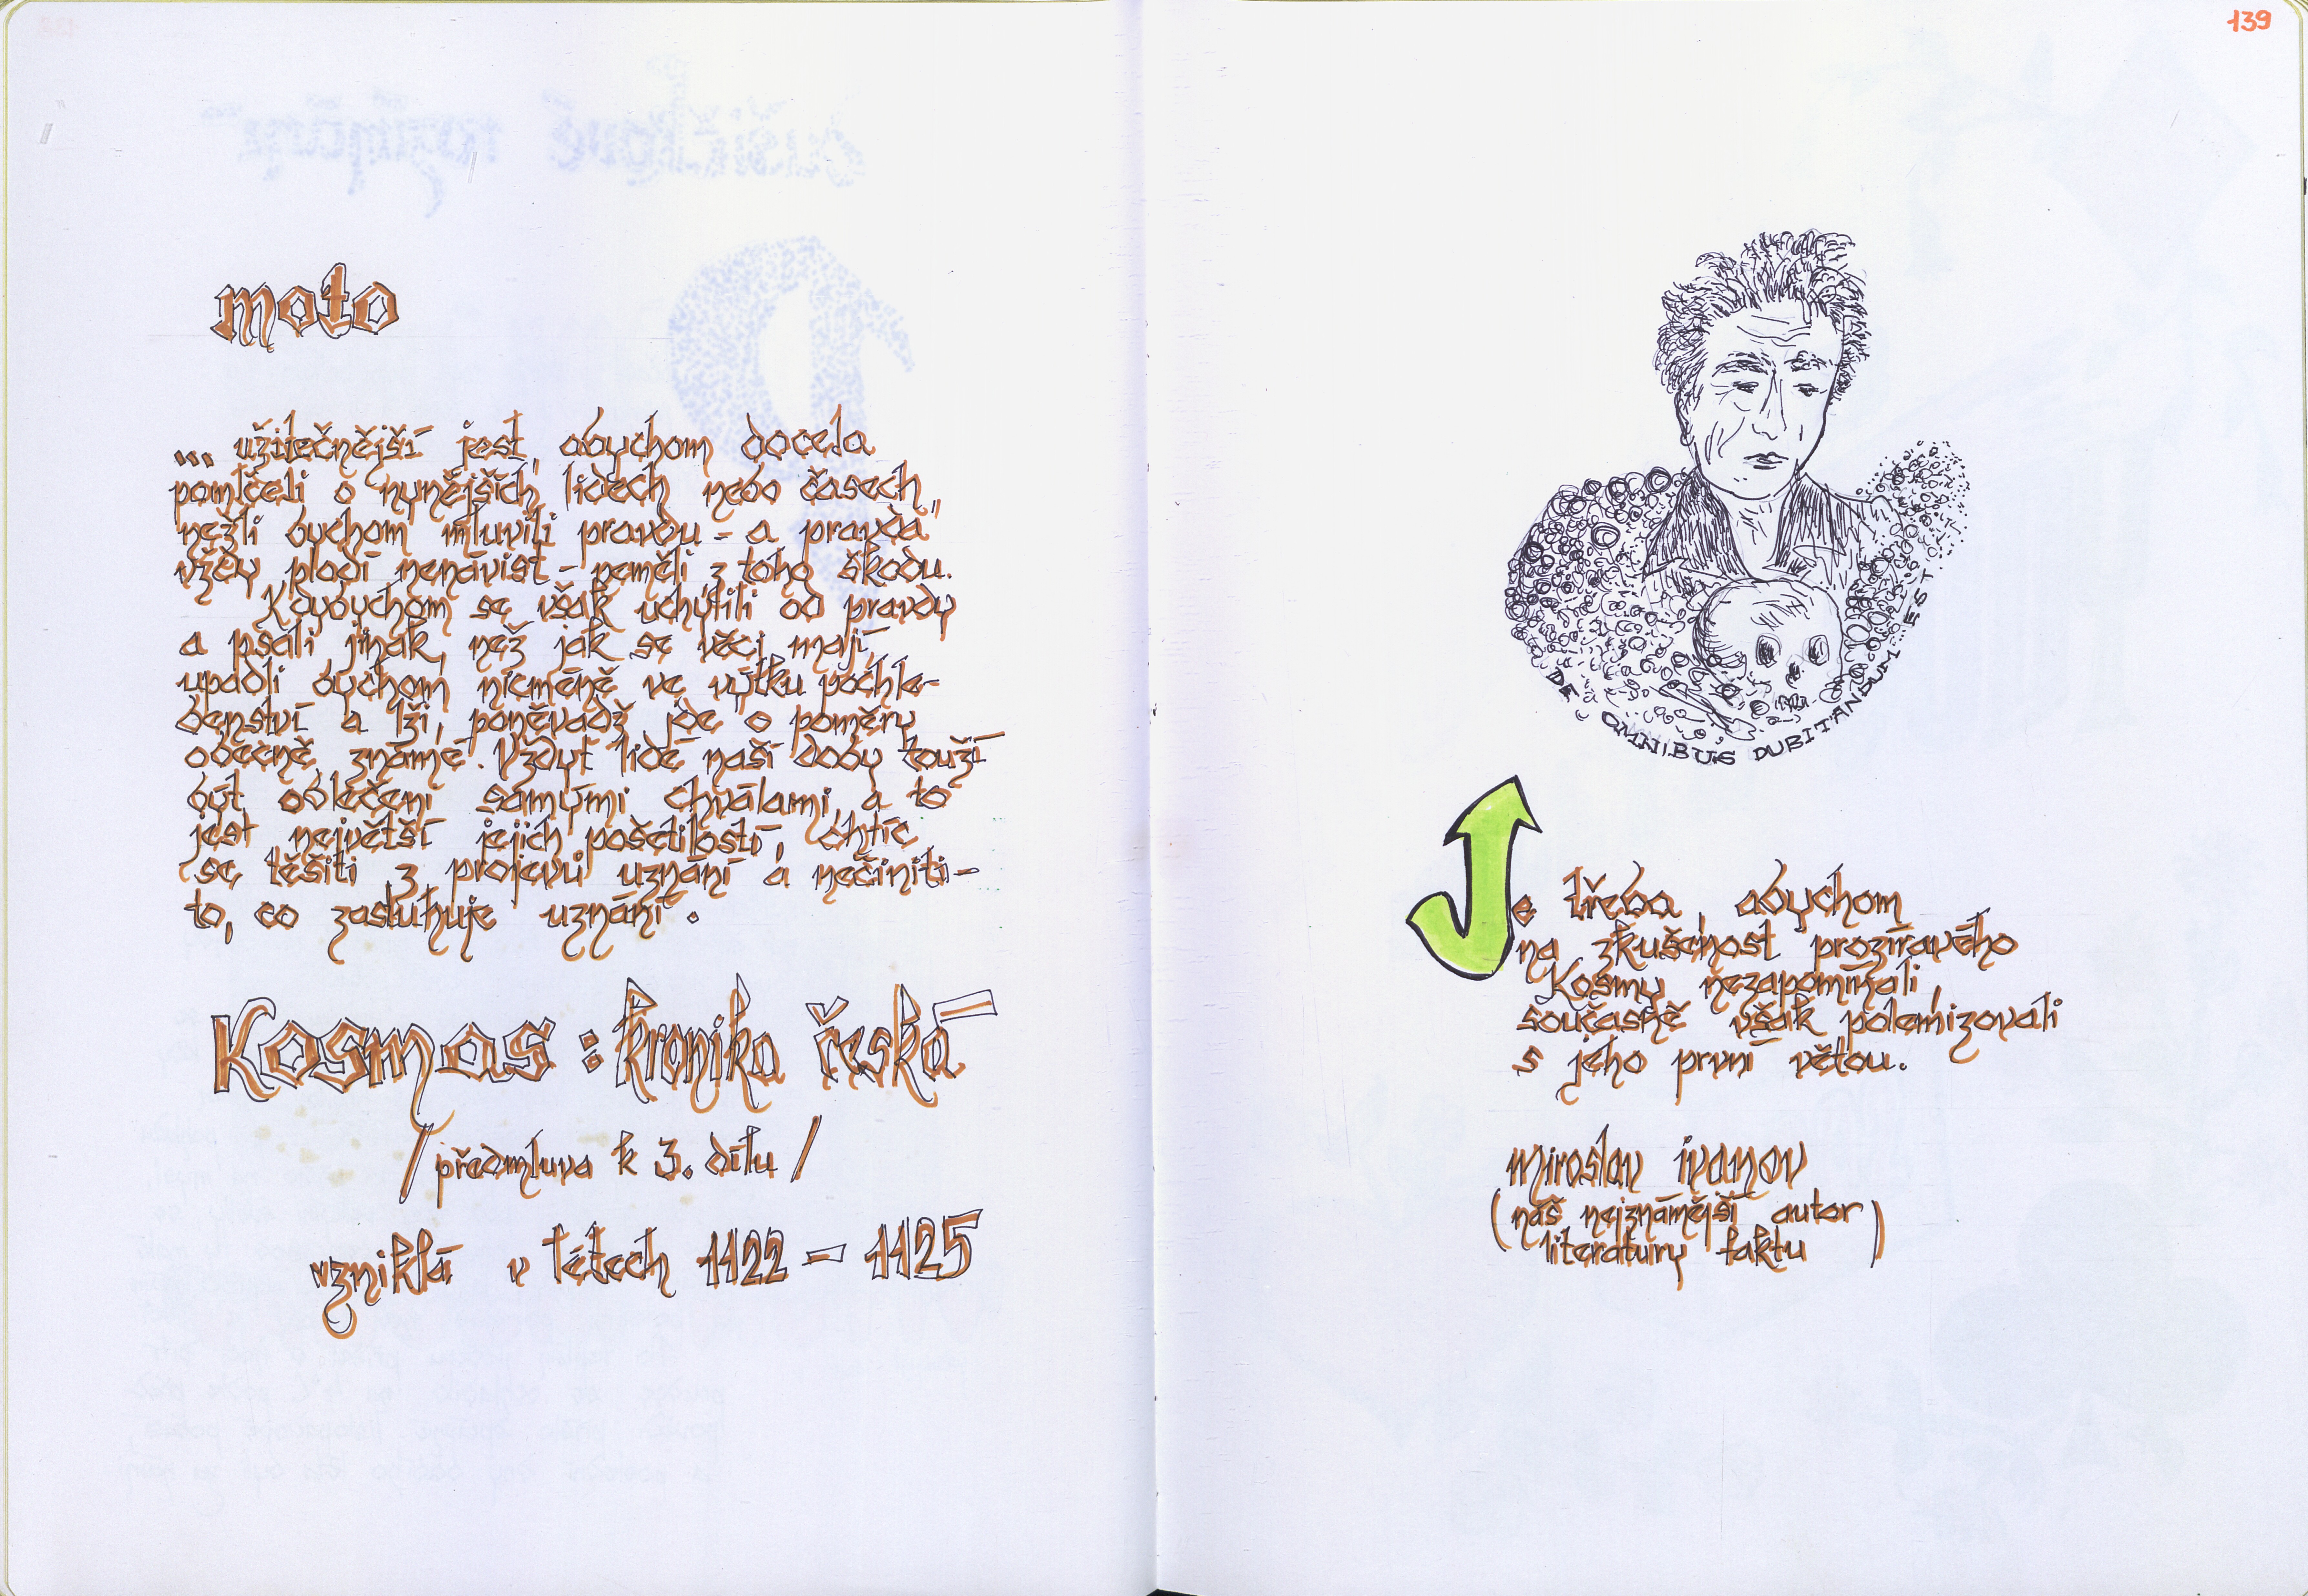 moto
... užitečnější jest, abychom docela
pomlčeli o nynějších lidech nebo časech,
nežli bychom mluvili pravdu - a pravda
vždy plodí nenávist - neměli z toho škodu.
Kdybychom se však uchýlili od pravdy
a psali jinak, než jak se věci mají,
upadli bychom nicméně ve výtku pochle-
benství a lži, poněvadž jde o poměry
obecně známé. Vždyť lidé naší doby touží
být oblečeni samými chválami, a to
jest největší jejich pošetilostí, chtíc
se těšiti z projevů uznání a nečiniti-
to, co zasluhuje uznání.
Kosmas : kronika česká
/předmluva k 3. dílu/
vzniklá v létech 1122 - 1125
139
DE OMNIBUS DUBITANDUM EST
Je třeba, abychom
na zkušenost prozíravého
Kosmy nezapomínali,
současně však polemizovali
s jeho první větou.
miroslav ivanov
(náš nejznámější autor
literatury faktu)